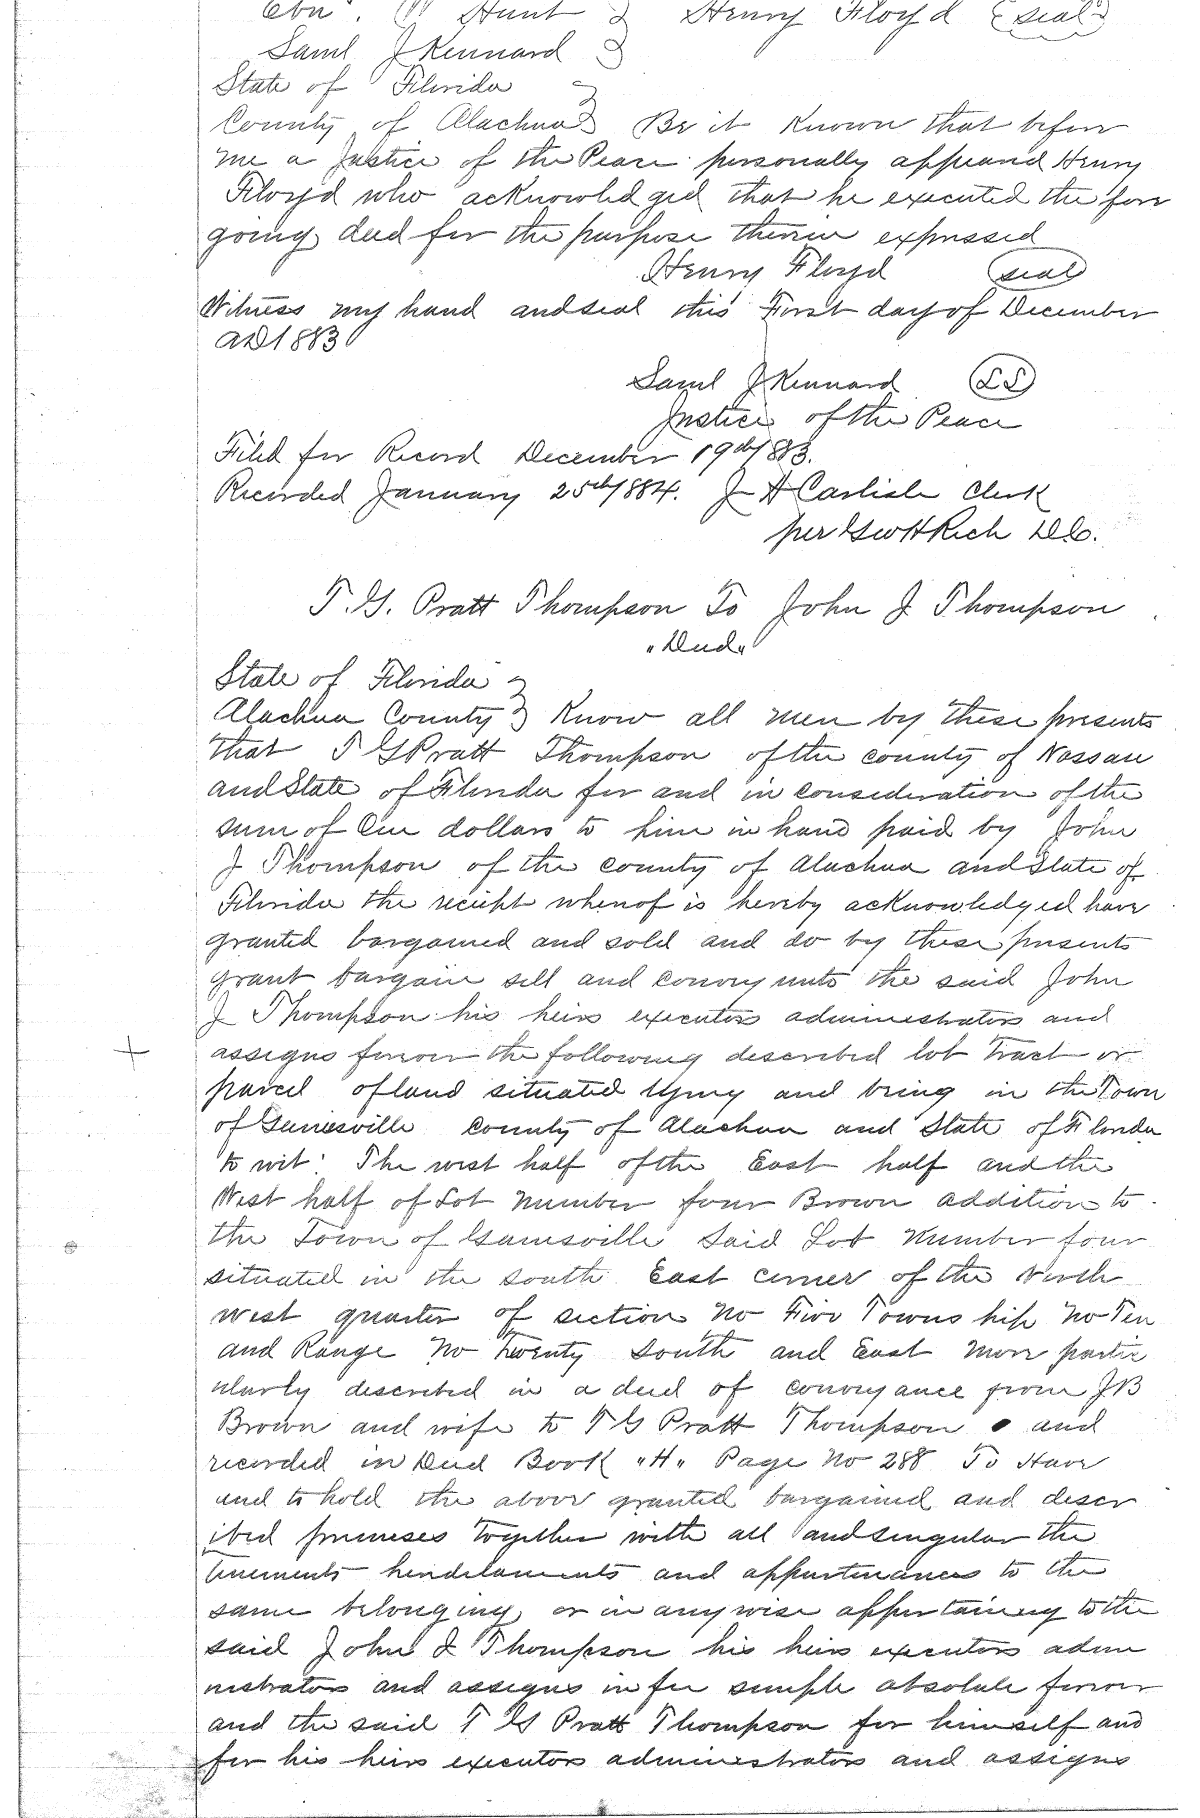 Hunt } Henry Floyd (seal)
Saml J Kennard }
State of Florida }
County of Alachua } Be it Known that before
me a Justice of the Peace personally appeared Henry
Floyd who acknowledged that he executed the fore
going deed for the purpose therein expressed
Henry Floyd (seal)
Witness my hand and seal this First day of December
AD 1883
Saml J Kennard (LS)
Justice of the Peace
Filed for Record December 19th/883.
Recorded January 25th/884. J H Carlisle Clerk
per Geo H Rich D.C.
T. G. Pratt Thompson To John J Thompson
"Deed"
State of Florida }
Alachua County } Know all men by these presents
that T G Pratt Thompson of the county of Nassau
and State of Florida for and in consideration of the
sum of One dollars to him in hand paid by John
J Thompson of the county of Alachua and State of
Florida the receipt whereof is hereby acknowledged have
granted bargained and sold and do by these presents
grant bargain sell and convey unto the said John
J Thompson his heirs executors administrators and
assigns forever the following described lot tract or
parcel of land situated lying and being in the Town
of Gainesville County of Alachua and State of Florida
to wit: The west half of the East half and the
West half of Lot Number four Brown addition to
the Town of Gainesville Said Lot Number four
situated in the south East corner of the North
west quarter of section No Five Towns hip No Ten
and Range No Twenty South and East more partic
ularly described in a deed of conveyance from J B
Brown and wife to T G Pratt Thompson and
recorded in Deed Book "H" Page No 288 To Have
and to hold the above granted bargained and descr
ibed premises together with all and singular the
tenements heriditaments and appurtenances to the
same belonging or in anywise appertaining to the
said John J Thompson his heirs executors admi
nistrators and assigns in fee simple absolute forever
and the said T G Pratt Thompson for himself and
for his heirs executors administrators and assigns